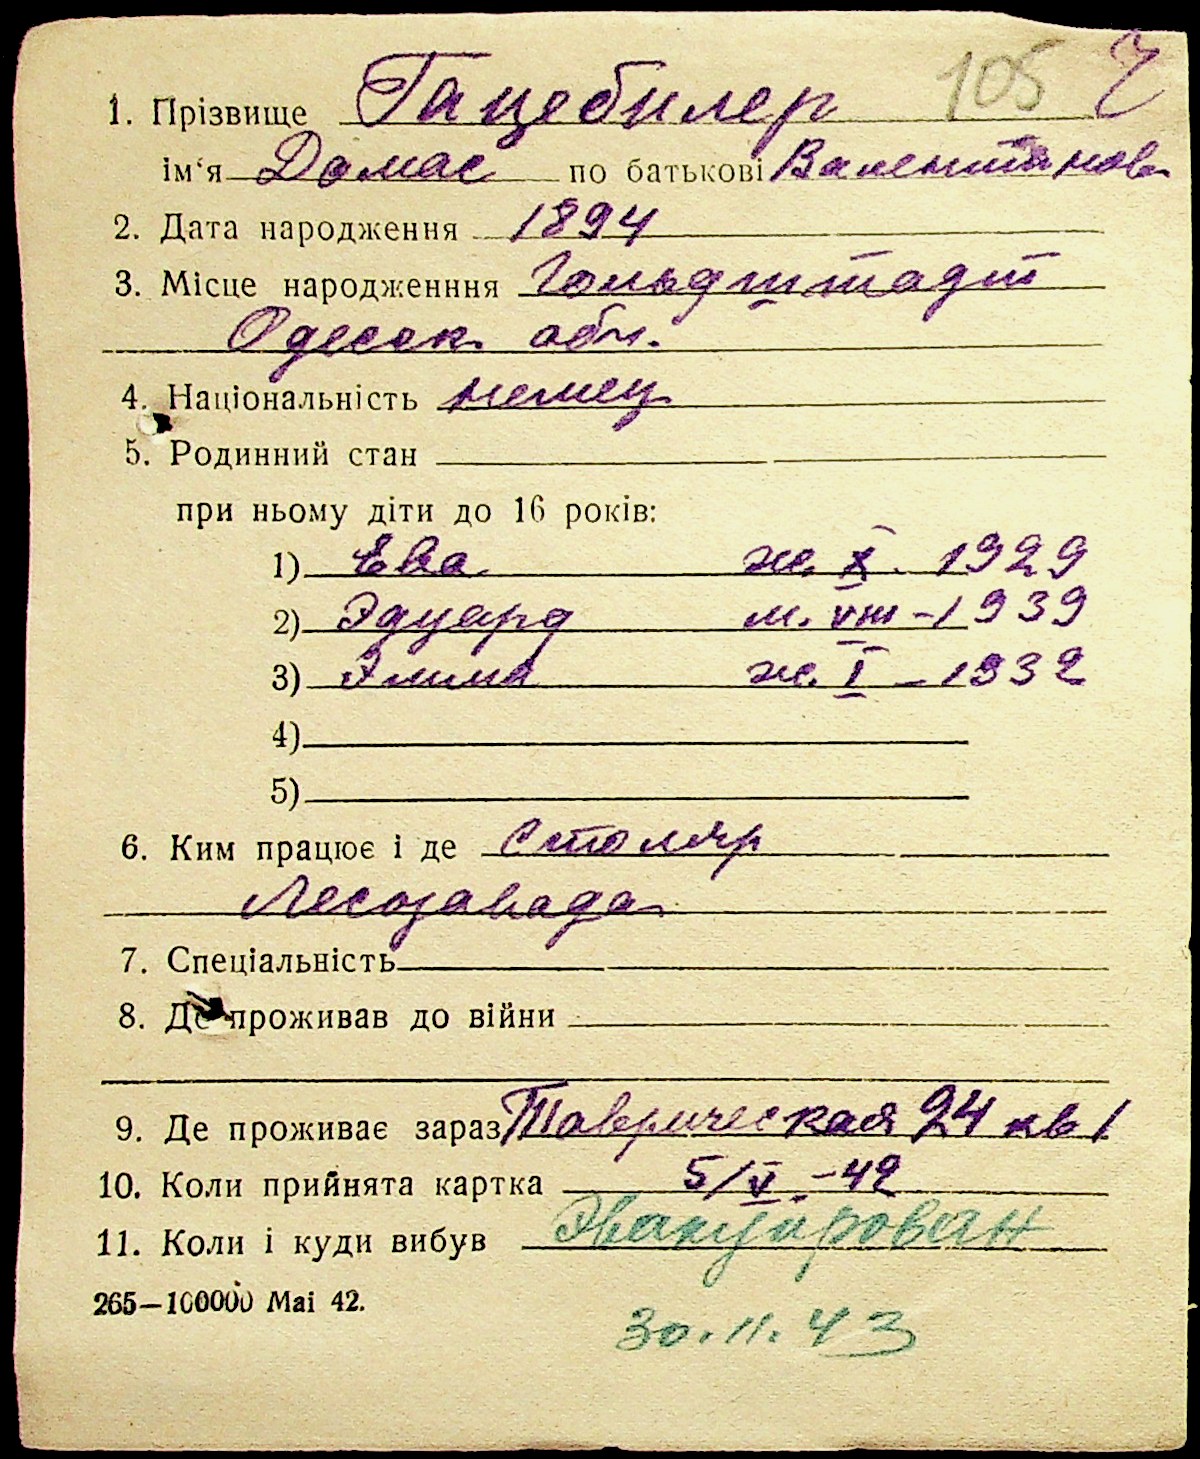 105 Ч
1. Прізвище Гацебилер
ім‘я Домас по батькові Валентинов.
2. Дата народження 1894
3. Місце народженння Гольдштадт
Одесск. обл.
4. Національність немец
5. Родинний стан
при ньому діти до 16 років:
1) Ева ж. X. 1929
2) Эдуард м. VIII - 1939
3) Элима ж. I - 1932
4)
5)
6. Ким працює і де Столяр
Лесозавода
7. Спеціальність
8. Де проживав до війни
9. Де проживає зараз Таврическая 24 кв 1
10. Коли прийнята картка 5/V. - 42
11. Коли і куди вибув Эвакуирован
265—100000 Mai 42.
30.11.43